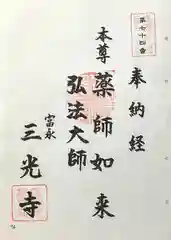 第七十四番
奉納経
本尊
薬師如来
弘法大師
富永
三光寺